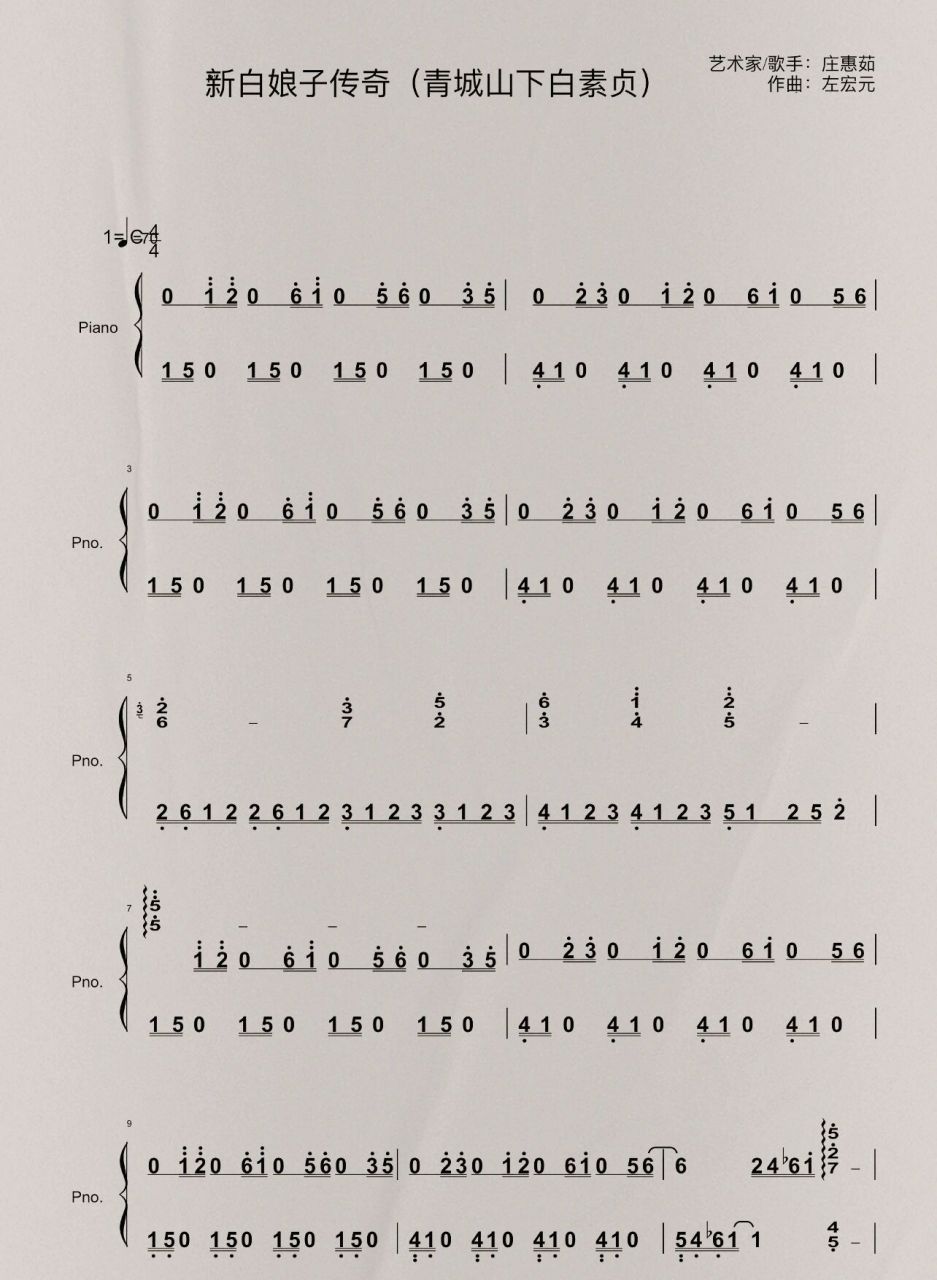 新白娘子传奇（青城山下白素贞）
艺术家/歌手：庄惠茹
作曲：左宏元
1= C 4/4
Piano
0 1 2 0 6 1 0 5 6 0 3 5 | 0 2 3 0 1 2 0 6 1 0 5 6 |
1 5 0 1 5 0 1 5 0 1 5 0 | 4 1 0 4 1 0 4 1 0 4 1 0 |
3
Pno.
0 1 2 0 6 1 0 5 6 0 3 5 | 0 2 3 0 1 2 0 6 1 0 5 6 |
1 5 0 1 5 0 1 5 0 1 5 0 | 4 1 0 4 1 0 4 1 0 4 1 0 |
5
Pno.
3 2 – 3 5 | 6 1 2 – |
6 7 2 | 3 4 5
2 6 1 2 2 6 1 2 3 1 2 3 3 1 2 3 | 4 1 2 3 4 1 2 3 5 1 2 5 2 |
7
Pno.
5
5 – – –
1 2 0 6 1 0 5 6 0 3 5 | 0 2 3 0 1 2 0 6 1 0 5 6 |
1 5 0 1 5 0 1 5 0 1 5 0 | 4 1 0 4 1 0 4 1 0 4 1 0 |
9
Pno.
5
2
0 1 2 0 6 1 0 5 6 0 3 5 | 0 2 3 0 1 2 0 6 1 0 5 6 | 6 2 4 ♭6 1 7 – |
4
1 5 0 1 5 0 1 5 0 1 5 0 | 4 1 0 4 1 0 4 1 0 4 1 0 | 5 4 ♭6 1 1 5 – |